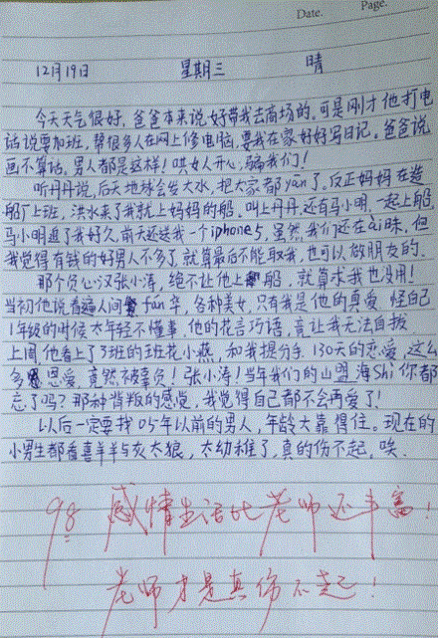 Date.    Page.
12月19日    星期三    晴
今天天气很好，爸爸本来说好带我去商场的。可是刚才他打电
话说要加班，帮很多人在网上修电脑，要我在家好好写日记。爸爸说
画不算话。男人都是这样！哄女人开心，骗我们！
听丹丹说，后天地球会发大水，把大家都yān了，反正妈妈在造
船厂上班，洪水来了我就上妈妈的船，叫上丹丹，还有马小明，一起上船，
马小明追了我好久，前天还送我一个iphone5，虽然我们还在ài昧，但
我觉得有钱的好男人不多了，就算最后不能取我，也可以做朋友的。
那个负心汉张小涛，绝不让他上船，就算求我也没用！
当初他说看遍人间fán华，各种美女，只有我是他的真爱，怪自己
1年级的时候太年轻不懂事，他的花言巧语，竟让我无法自拔
上周他看上了3班的班花小燕，和我提分手，130天的恋爱，这么
多恩爱，竟然被辜负！张小涛！当年我们的山盟海shi你都
忘了吗？那种背叛的感觉，我觉得自己都不会再爱了！
以后一定要找05年以前的男人，年龄大靠得住。现在的
小男生都看喜羊羊与灰太狼，太幼稚了，真的伤不起，唉．
98 感情生活比老师还丰富！
老师才是真伤不起！